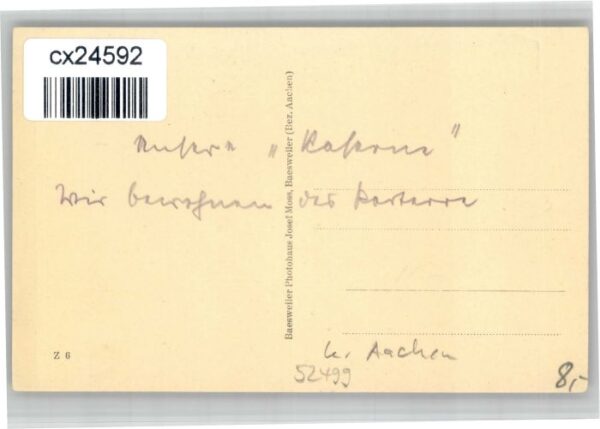 cx24592
Unsere „Kaserne"
Wir bewohnen das Parterre
Baesweiler Photohaus Josef Moss, Baesweiler (Bez. Aachen)
Z 6
kr. Aachen
52499
8,-